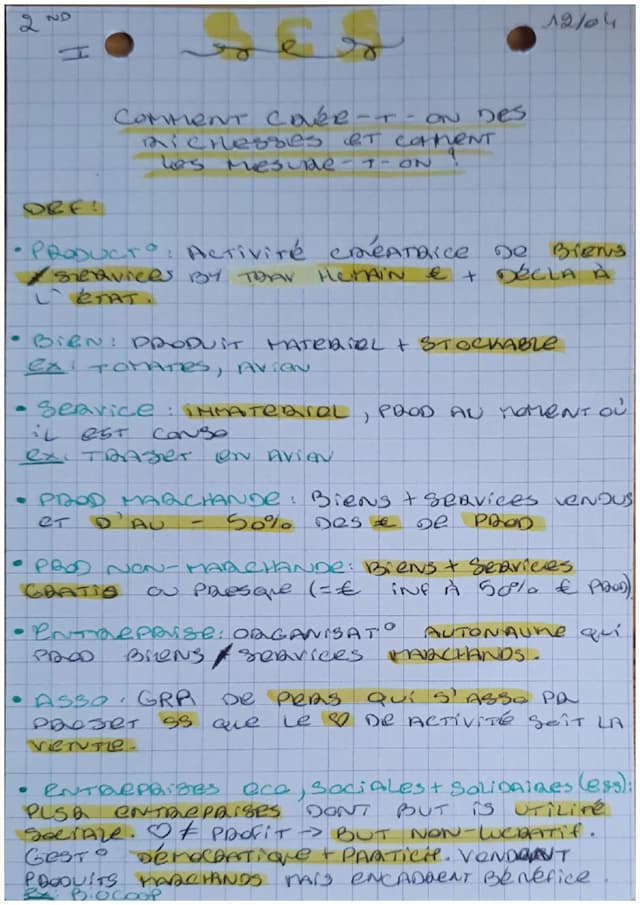 2ND
I
SES
12/04
COMMENT CRÉE-T-ON DES
RICHESSES ET COMENT
LES MESURE-T-ON ?
DEF:
• PRODUCT°: ACTIVITÉ CRÉATRICE DE BIENS
/SERVICES BY TRAV HUMAIN € + DÉCLA À
L'ÉTAT.
• BIEN: PRODUIT MATERIEL + STOCKABLE
ex: TOMATES, AVION
• SERVICE: IMMATERIEL, PROD AU MOMENT OÙ
IL EST CONSO
ex: TRAJET EN AVION
• PROD MARCHANDE: BIENS + SERVICES VENDUS
ET D'AU - 50% DES € DE PROD
• PROD NON-MARCHANDE: BIENS + SERVICES
GRATIS OU PRESQUE (=€ INF À 50% € PROD)
• ENTREPRISE: ORGANISAT° AUTONAUME QUI
PROD BIENS / SERVICES MARCHANDS.
• ASSO: GRP DE PERS QUI S'ASSO PR
PROJET SS QUE LE ♡ DE ACTIVITÉ SOIT LA
VENTE.
• ENTREPRISES ECO, SOCIALES + SOLIDAIRES (ESS):
PLSR ENTREPRISES DONT BUT IS UTILITÉ
SOCIALE. ♡ ≠ PROFIT → BUT NON-LUCRATIF.
GEST° DÉMOCRATIQUE + PARTICIP. VENDANT
PRODUITS MARCHANDS MAIS ENCADRENT BÉNÉFICE.
Ex: BIOCOOP